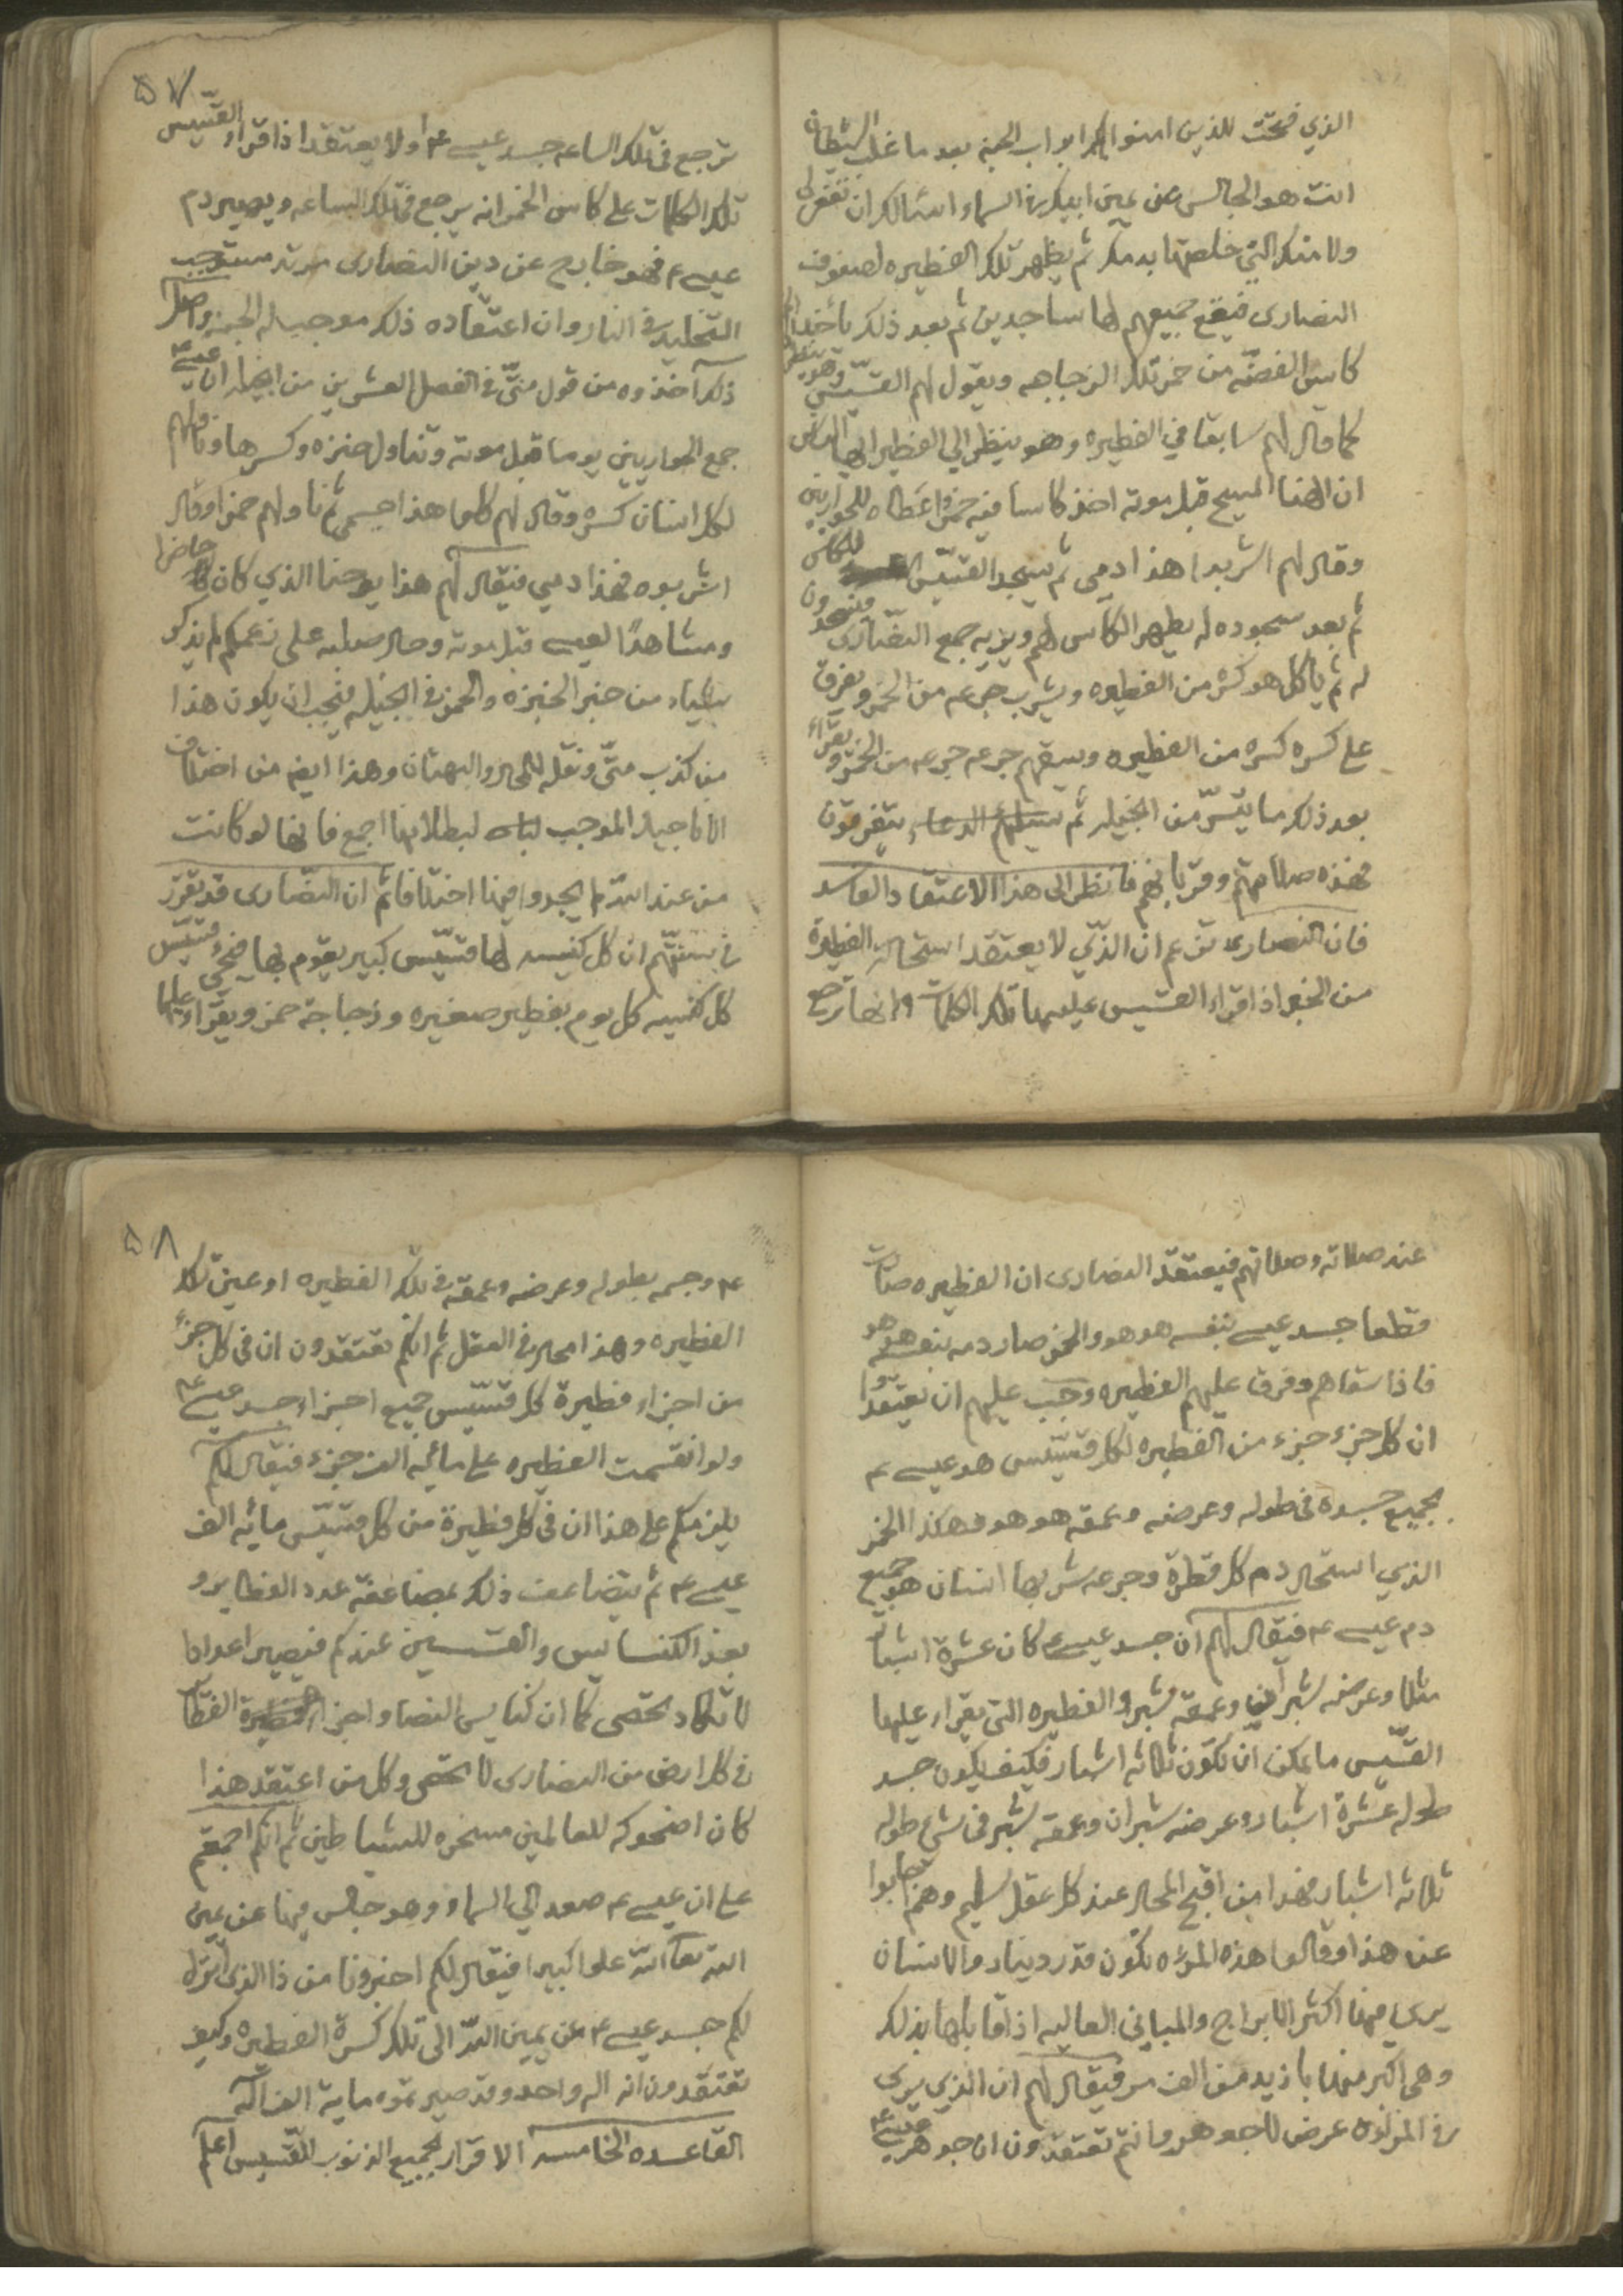 الذي فتحت للذين امنوا بك ابواب الجنه بعد ما غلب الشيطان
انت هو الجالس عن يمين ابيك في السماء اسئالك ان تغفر لي
ولامتك التي خلصتها بدمك ثم يظهر تلك الفطيره لصفوف
النصارى فيقع جميعهم لها ساجدين ثم بعد ذلك يأخذ
كاس الفضه من خمر تلك الزجاجه ويقول لهم القسّيس وهو ينظر
كما قال لهم سابقا في الفطيره وهو ينظر الي الفطير ايها الناس
ان الهنا المسيح قبل موته اخذ كاسا فيه خمر واعطاه للحواريين
وقال لهم اشربوا هذا دمي ثم يسجد القسّيس للكاس
ثم بعد سجوده له يظهر الكاس لهم ويريه جمع النصّارى فيسجدون
له ثم يأكل هو كسره من الفطيره ويشرب جرعه من الخمر ويفرق
على كسره كسره من الفطيره ويسقيهم جرعه جرعه من الخمر ويقراء
بعد ذلك ما يتسّر من انجيله ثم يتفرقون
فهذه صلاتهم وقربانهم فانظر الى هذا الاعتقاد الفاسد
فان النصارى تزعم ان الذّي لا يعتقد استحالة الفطيرة
من الخبز اذا قراء القسيس عليها تلك الكلمات وانها ترجع
٥٧
ترجع في تلك الساعه جسد عيسى ع م ولا يعتقد اذا قراء القسّيس
تلك الكلمات على كاس الخمر انه يرجع في تلك الساعه ويصير دم
عيسى ع فهو خارج عن دين النصارى مرتد مستوجب
التخليد في النار وان اعتقاده ذلك موجب له الجنه واصل
ذلك اخذوه من قول متّى في الفصل العشرين من انجيله ان عيسى ع م
جمع الحواريين يوما قبل موته وتناول خبزه وكسرها وناولهم
لكل انسان كسره وقال لهم كلوا هذا جسمي ثم ناولهم خمرا وقال
اشربوه فهذا دمي فيقال لهم هذا يوحنا الذي كان حاضرا
ومشاهدًا لعيسى قبل موته وحال صلبه على زعمكم لم يذكر
شياء من خبر الخبزه والخمر في انجيله فيجب ان يكون هذا
من كذب متّى ونقله للمحال والبهتان وهذا ايضا من اختلاف
الاناجيل الموجب لبطلانها اجمع فانها لو كانت
من عند الله لم يجدوا فيها اختلافا ثم ان النصّارى قد تقرر
في سنتّهم ان كل كنيسه لها قسّيس كبير يقوم بها فيجئ قسّيس
كل كنيسه كل يوم بفطير صغيره وزجاجة خمر ويقراء عليها
عند صلاته وصلاتهم فيعتقد النصارى ان الفطيره صارت
قطعا جسد عيسى بنفسه هو هو والخمر صار دمه بنفسه هو هو
فاذا سقاهم وفرق عليهم الفطيره وجب عليهم ان يعتقدوا
ان كل جزء جزء من الفطيره لكل قسّيس هو عيسى ع
بجميع جسده في طوله وعرضه وعمقه هو هو فهكذا الخمر
الذي استحال دم كل قطرة وجرعه شربها انسان هو جميع
دم عيسى ع م فيقال لهم ان جسد عيسى ع كان عشرة اشبار
مثلا وعرضه شبرا وعمقه شبرا والفطيره التي يقراء عليها
القسّيس ما يمكن ان تكون ثلاثه اشبار فكيف يكون جسد
طوله عشرة اشبار وعرضه شبران وعمقه شبر في شئ طوله
ثلاثه اشبار فهذا من اقبح المحال عند كل عقل سليم وهم اجابوا
عن هذا وقالوا هذه المرءاه تكون قدر دينار والانسان
يرى فيها اكثر الابراج والمباني العاليه اذا قابلها بذلك
وهي اكبر منها بازيد من الف مره فيقال لهم ان الذي يرى
في المراءه عرض لا جوهر وانتم تعتقدون ان جوهر عيسى ع م
٥٨
ع م وجسمه بطوله وعرضه وعمقه في تلك الفطيره او عين تلك
الفطيره وهذا محال في العقل ثم انكم تعتقدون ان في كل جزء
من اجزاء فطيرة كل قسّيس جميع اجزاء جسد عيسى ع م
ولو انقسمت الفطيره على مائه الف جزء فيقال لكم
يلزمكم على هذا ان في كل فطيرة من كل قسّيس مائه الف
عيسى ع م ثم يتضاعف ذلك بمضاعفة عدد الفطاير و
بعد الكنسايس والقسيسين عندكم فيصير اعدادا
لا تكاد تحصى كما ان كنايس النصا واجزاء الفطا
في كل ارض من النصارى لا تحصى وكل من اعتقد هذا
كان اضحوكه للعالمين مسخره للشياطين ثم انكم اجمعتم
على ان عيسى ع م صعد الى السماء وهو جالس فيها عن يمين
الله تعا الله علوا كبيرا فيقال لكم اخبرونا من ذا الذى انزل
لكم جسد عيسى ع م عن يمين الله الى تلك كسرة الفطيره وكيف
تعتقدون انه اله واحد وقد صيرتموه مايه الف اله
القاعده الخامسه الاقرار بجميع الذنوب للقسيس اعلم